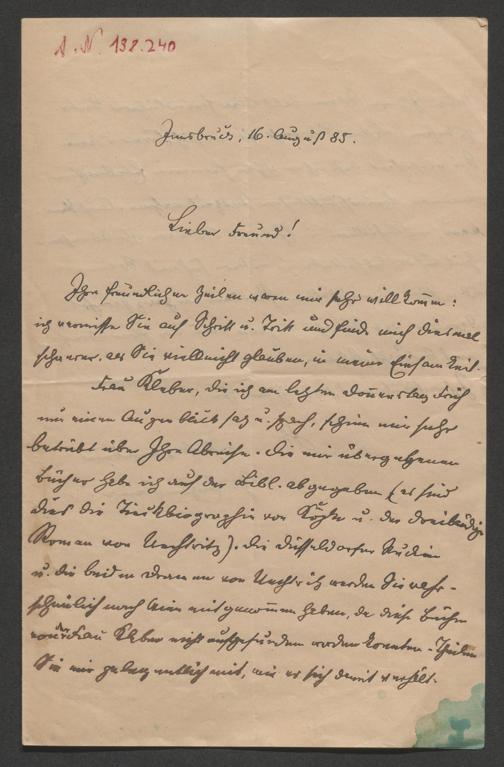 A. N. 138.240
Innsbruck, 16. August 85.
Lieber Freund!
Ihre freundlichen Zeilen waren mir sehr willkommen:
ich vermisse Sie auf Schritt u. Tritt und finde mich diesmal
schwerer, als Sie vielleicht glauben, in meine Einsamkeit.
Frau Kleber, die ich am letzten Donnerstag früh
nur einen Augenblick sah u. sprach, schien mir sehr
betrübt über Ihre Abreise. Die mir übergebenen
Bücher habe ich auf der Bibl. abgegeben (es sind
dies die Tieckbiographie von Köpke u. der dreibändige
Roman von Uechtritz). Die Düsseldorfer Studien
u. die beiden Dramen von Uechtritz werden Sie wahr-
scheinlich nach Wien mitgenommen haben, da diese Bücher
von der Frau Kleber nicht aufgefunden werden konnten. Theilen
Sie mir gelegentlich mit, wie es sich damit verhält.